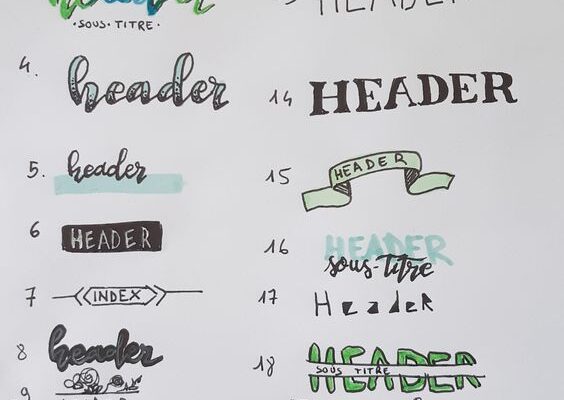 header
·SOUS·TITRE·
4. header
5. header
6 HEADER
7 INDEX
8 header
9
HEADER
14 HEADER
15 HEADER
16 HEADER
sous-titre
17 HeadeR
18 HEADER
SOUS TITRE